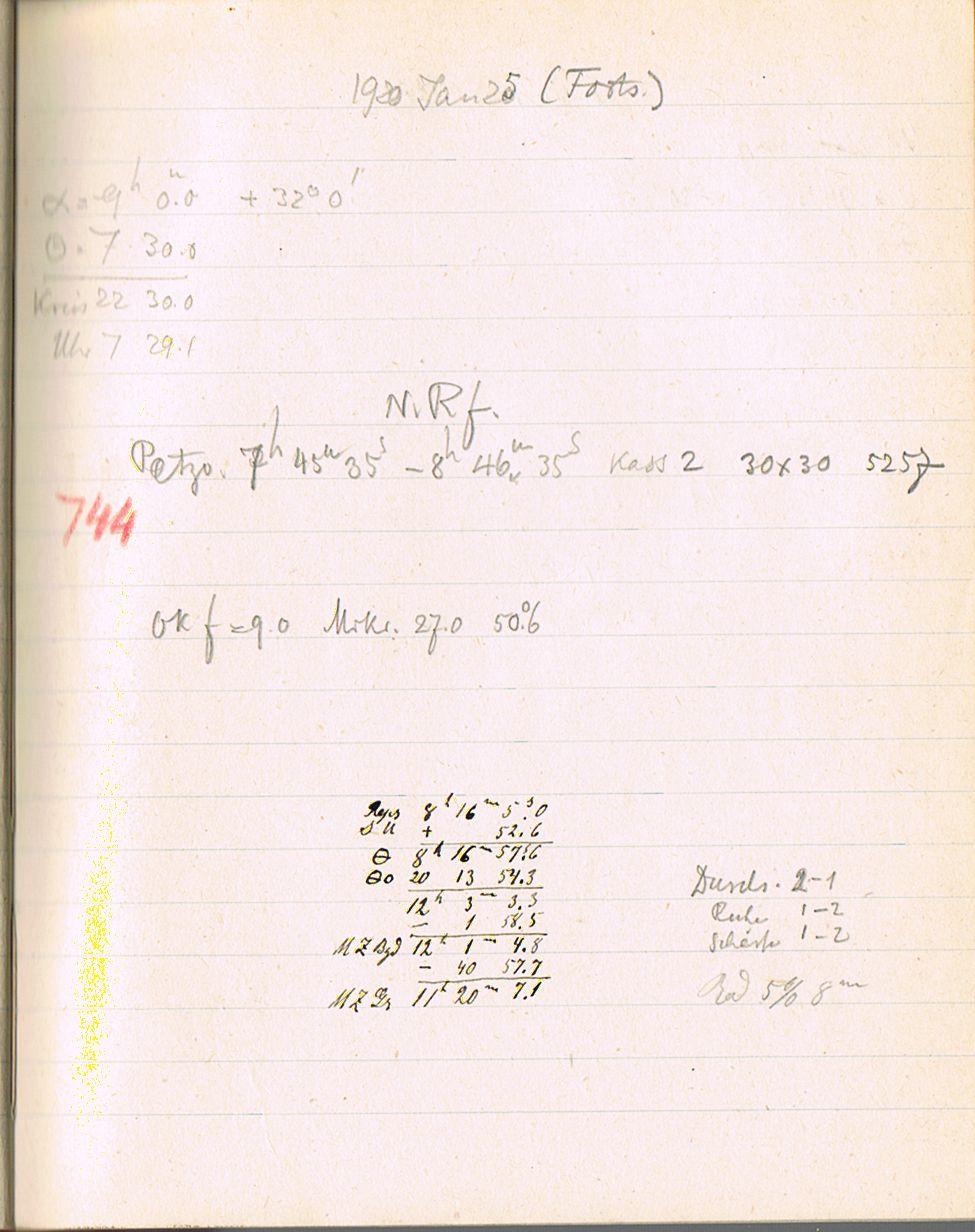 1920 Jan 25 (Forts.)
α = 9ʰ 0.0ᵐ + 32° 0'
Θ = 7 30.0
Kreis 22 30.0
Uhr 7 29.1
N.R f.
Petzv. 7ʰ 45ᵐ 35ˢ – 8ʰ 46ᵐ 35ˢ Kass 2 30x30 5257
744
OK f = 9.0 Mikr. 27.0 50%
8ʰ 16ᵐ 5ˢ.0
Δu + 52.6
Θ 8ʰ 16ᵐ 57ˢ.6
Θ0 20 13 54.3
12ʰ 3ᵐ 3.3
– 1 58.5
MZ Bgd 12ʰ 1ᵐ 4.8
– 40 57.7
MZ Gr 11ʰ 20ᵐ 7.1
Durchs. 2–1
Ruhe 1–2
Schärfe 1–2
Rod 5% 8ᵐ